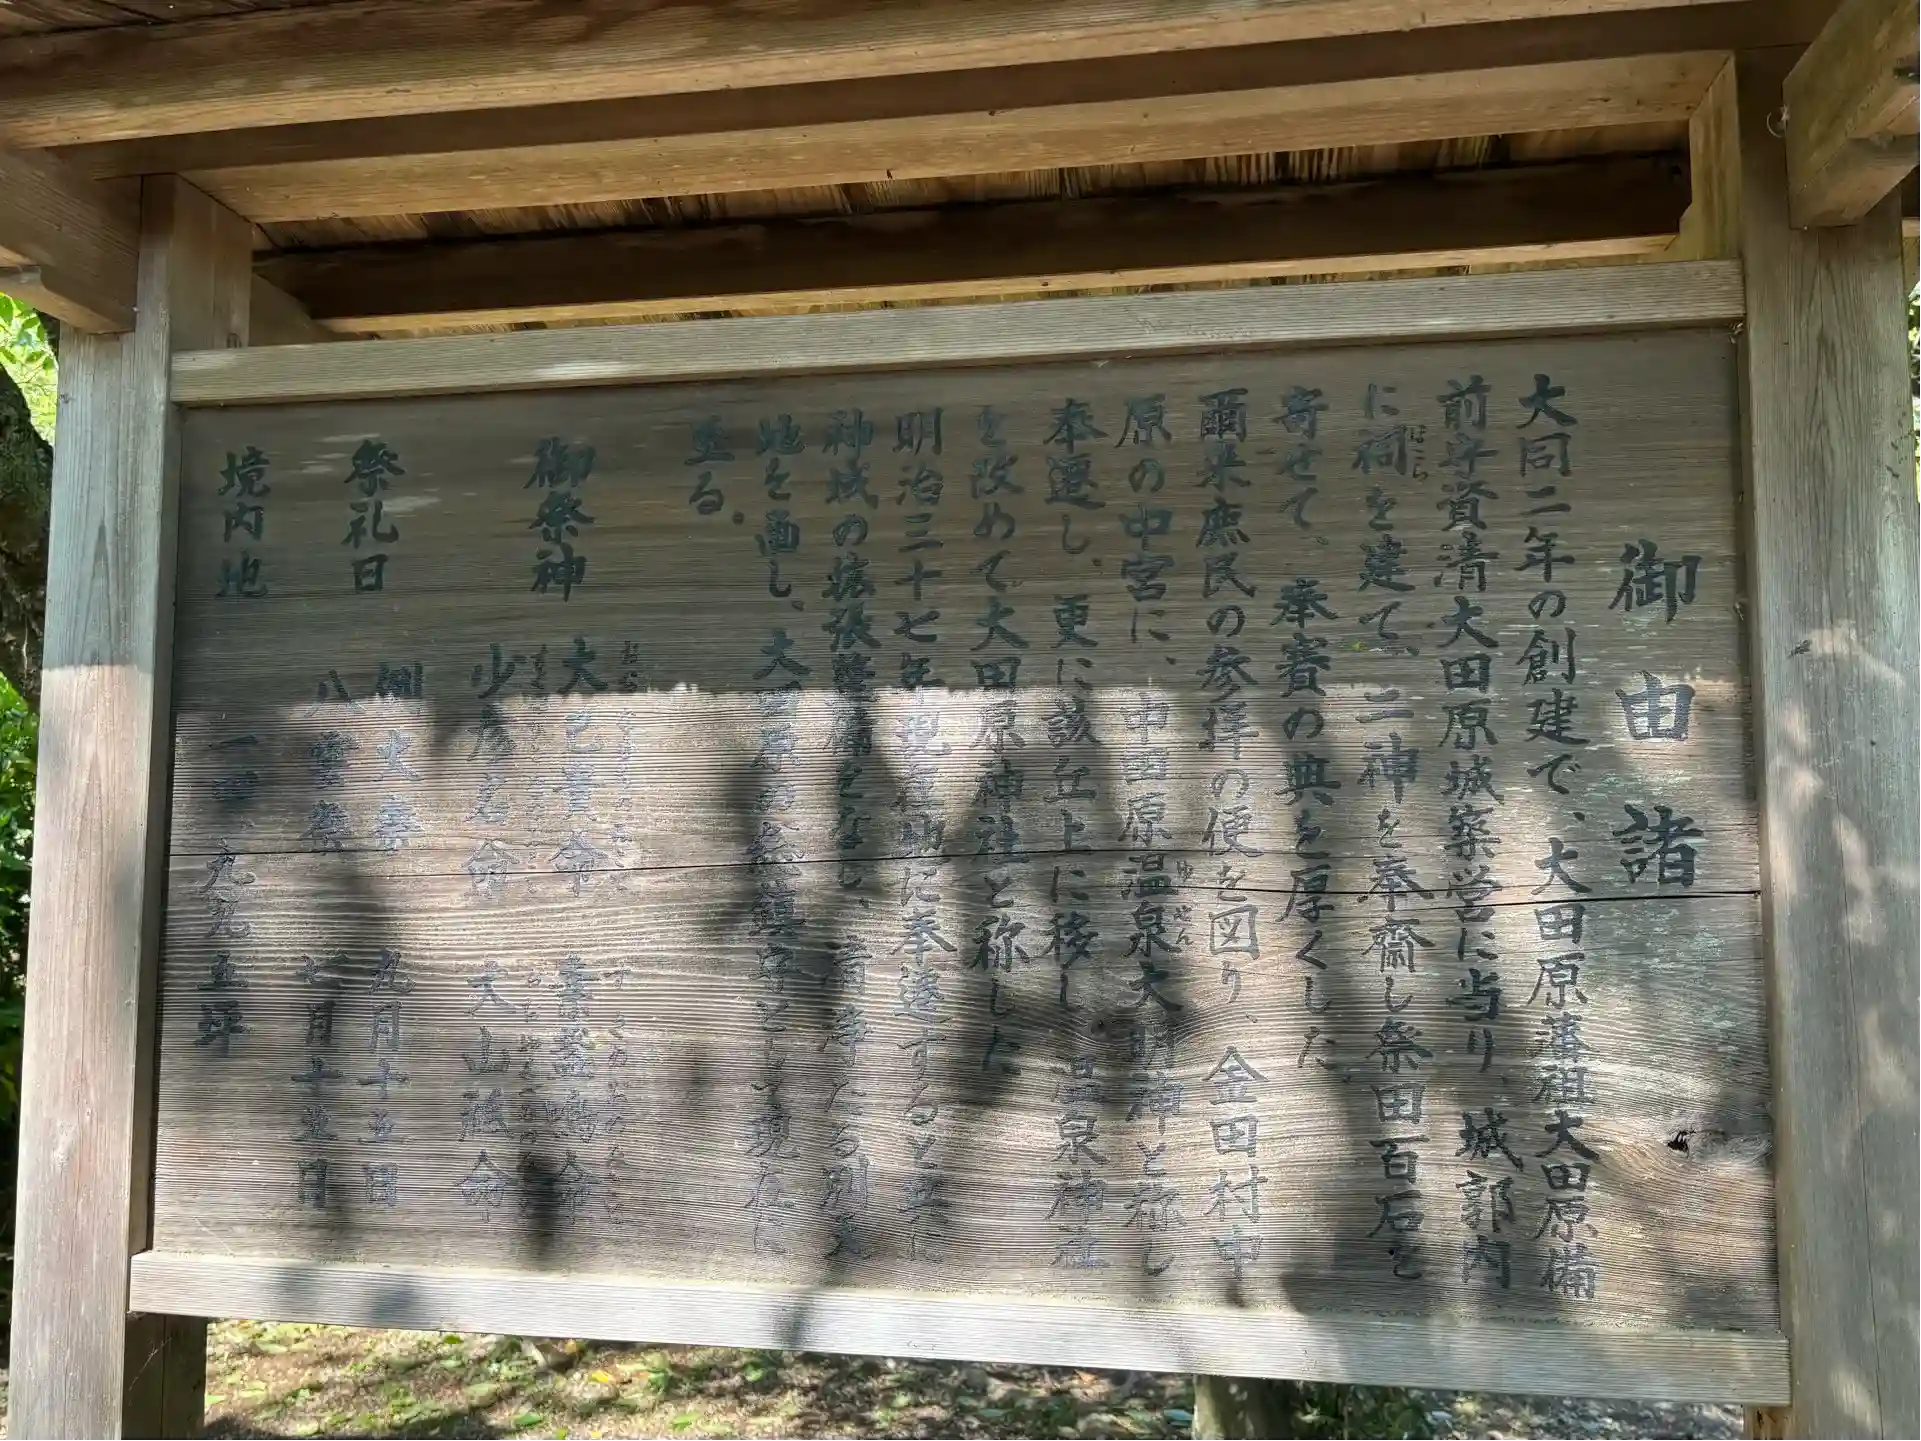 御由諸
大同二年の創建で、大田原藩祖大田原備
前守資清大田原城築営に当り、城郭内
に祠を建て、二神を奉齋し祭田百石を
ほこら
寄せて、奉賽の典を厚くした。
爾来庶民の参拝の便を図り、金田村中
原の中宮に、中田原温泉大明神と称し
ゆぜん
奉遷し、更に該丘上に移し、温泉神社
を改めて大田原神社と称した
明治三十七年現在地に奉遷すると共に
神域の拡張整備をなし、清浄たる別天
地を画し、大田原の総鎮守として現在に
至る。
御祭神 大己貴命 素盞嗚命
少彦名命 大山祇命
祭礼日 例大祭 九月十五日
八雲祭 七月十五日
境内地 一四、九九五坪